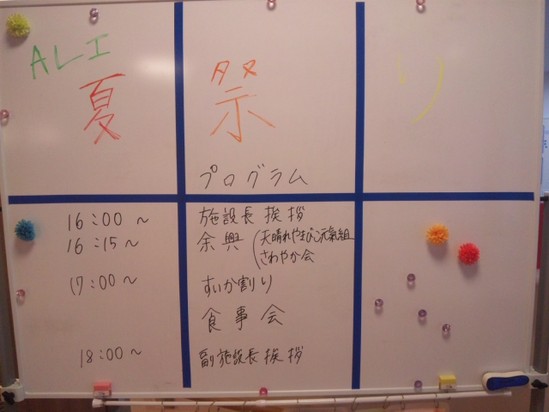 ALI
夏祭り
プログラム
16:00～ 施設長挨拶
16:15～ 余興(天晴れやまびこ元氣組
さわやか会
17:00～ すいか割り
食事会
18:00～ 副施設長挨拶